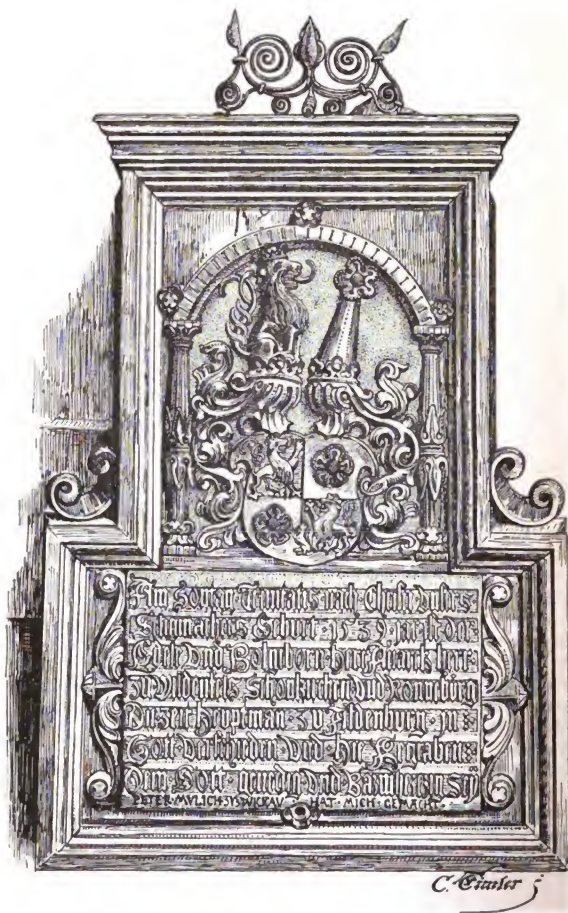 Am Sontag Trinitatis nach Christi Vnsers
Seligmachers Geburt 1539 Jar ist der
Edele vnd Wolgeborn herr Anarck herr
zu Wildenfels Schonkirchen vnd Ronneburg
heuptman zu Aldenburg in
Gott verschieden vnd hie Begraben
Dem Gott genedig vnd Barmhertzig Sey
PETER MVLICH HAT MICH GEMACHT